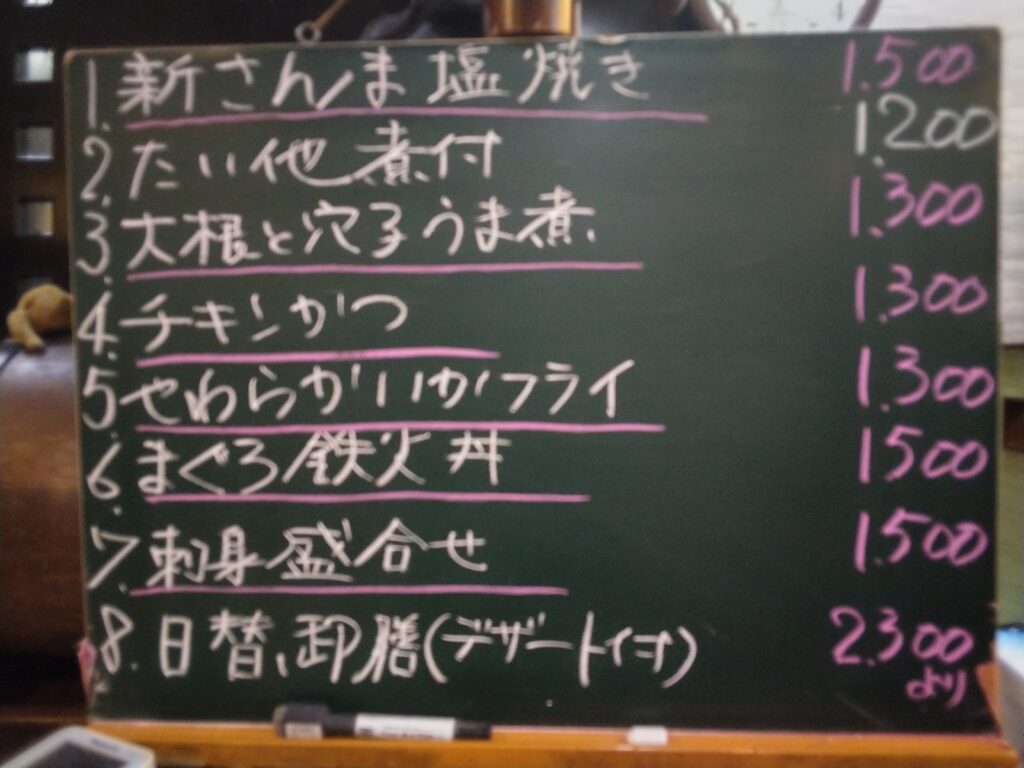 1. 新さんま塩焼き 1.500
2. たい他煮付 1.200
3. 大根と穴子うま煮 1.300
4. チキンかつ 1.300
5. やわらかいかフライ 1.300
6. まぐろ鉄火丼 1.500
7. 刺身盛合せ 1.500
8. 日替、御膳(デザート付) 2.300
より